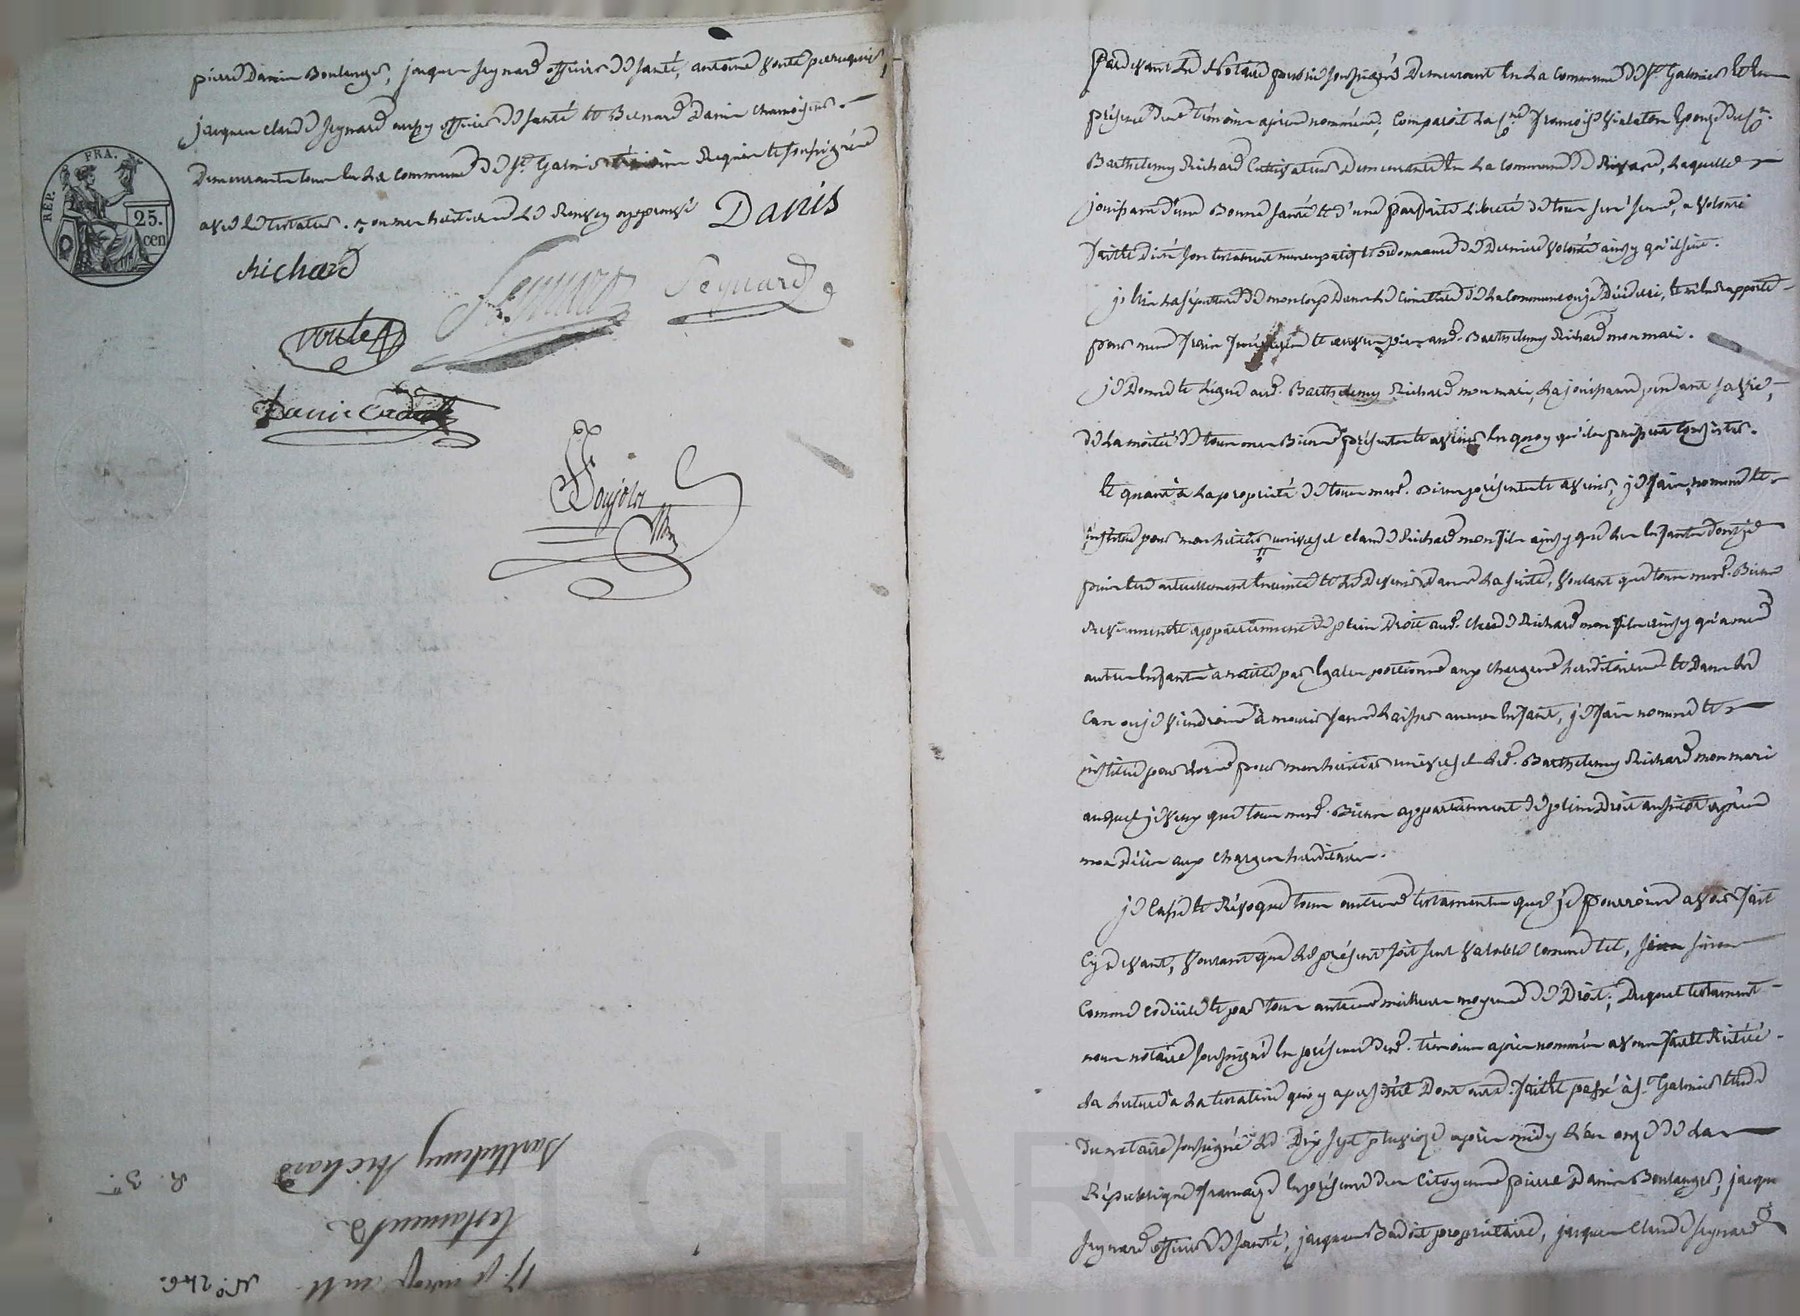 pierre Danis Boulanger, jacques Seignard officier de santé, antoine Voute perruquier,
jacques claude Seignard aussy officier de santé et Bernard Danis chamoiseur
Demeurants tous en la commune de St. Galmier témoins Requis et soussignés
avec le testateur.
Danis
Richard
Seignard
Seignard
Voute
Danis
Boujole
RÉP. FRA.
25.
cen
N.º 246.
17. pluviose an 11
testament de
Barthelemy Richard
R. 3
Pardevant Le Notaire public soussigné Demeurant En La Commune de St. Galmier Et En
présence des témoins après nommés, Comparoit La Cne. françoise Violaton Epouse du Cn.
Barthelemy Richard Cultivateur Demeurante En La Commune de Rivas, Laquelle
jouissant d'une Bonne santé et d'une parfaite Liberté de tous ses sens, a volonté
faitte Diré son testament nuncupatif et ordonnance de Derniere volonté ainsy qu'il suit.
j'élis La sépulture de mon Corps Dans Le Cimetiere de La commune ou je Décéderai, et m'en rapporte
pour mes frais funéraires et œuvres pies aud. Barthelemy Richard mon mari.
je Donne et Légue aud. Barthelemy Richard mon mari, La jouissance, pendant sa vie,
de La moitié de tous mes Biens présents et avenir En quoy qu'ils puissent Consister.
Et quant à La propriété de tous mesd. Biens présents et avenir, je fais, nomme et
institue pour mon héritier universel claude Richard mon fils ainsy que Les Enfants dont je
puis être actuellement Enceinte et Le Devenir Dans La suite, Voulant que tous mesd. Biens
Reviennent et appartiennent de plein Droit aud. Claude Richard mon fils ainsy qu'a mes
autres Enfants à naitre par Egales portions aux charges héréditaires et Dans Le
Cas ou je viendrois à mourir sans Laisser aucun Enfant, je fais nomme et
institue pour Lors pour mon héritier universel Led. Barthelemy Richard mon mari
auquel je veux que tous mesd. Biens appartiennent de plein Droit aussitot après
mon Décès aux charges héréditaires.
je Casse et Révoque tous autres testaments que je pourrois avoir fait
Cy devant, Voulant que Le présent soit seul valable comme tel, sinon
Comme codicile et par tous autres meilleurs moyens de Droit; Duquel testament
nous notaire soussigné En présence desd. témoins après nommés avons fait et Réitéré
La Lecture à La testatrice qui y a persisté Dont acte. fait et passé à St. Galmier Etude
Du notaire soussigné Le Dix sept pluviose après midy L'an onze de La
République françaize En présence des Citoyens pierre Danis Boulanger, jacques
Seignard officier de santé, jacques Badoit propriétaire, jacques Claude Seignard